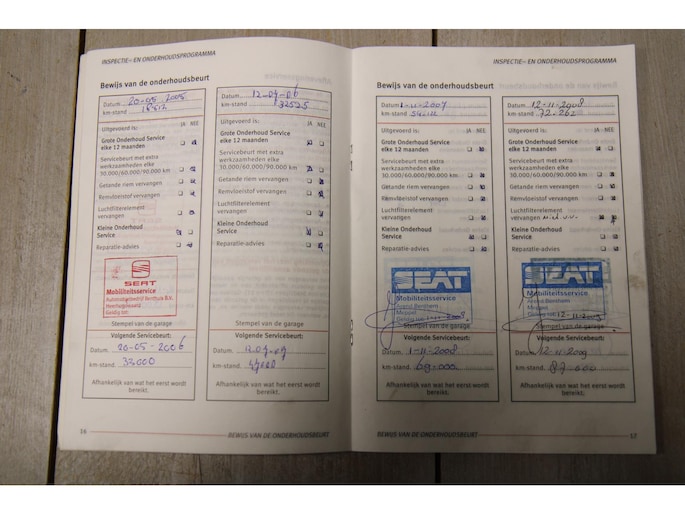 INSPECTIE- EN ONDERHOUDSPROGRAMMA
Bewijs van de onderhoudsbeurt
Datum 20-05 2005
km-stand
Uitgevoerd is: JA NEE
Grote Onderhoud Service
elke 12 maanden
Servicebeurt met extra
werkzaamheden elke
30.000/60.000/90.000 km
Getande riem vervangen
Remvloeistof vervangen
Luchtfilterelement
vervangen
Kleine Onderhoud
Service
Reparatie-advies
SEAT
Mobiliteitsservice
Automobielbedrijf Benthuis B.V.
Geldig tot:
Stempel van de garage
Volgende Servicebeurt:
Datum 20-05-2006
km-stand 33000
Afhankelijk van wat het eerst wordt
bereikt.
16
Datum 12-07-06
km-stand 32525
Uitgevoerd is: JA NEE
Grote Onderhoud Service
elke 12 maanden
Servicebeurt met extra
werkzaamheden elke
30.000/60.000/90.000 km
Getande riem vervangen
Remvloeistof vervangen
Luchtfilterelement
vervangen
Kleine Onderhoud
Service
Reparatie-advies
Stempel van de garage
Volgende Servicebeurt:
Datum 12-07-07
km-stand
Afhankelijk van wat het eerst wordt
bereikt.
BEWIJS VAN DE ONDERHOUDSBEURT
INSPECTIE- EN ONDERHOUDSPROGRAMMA
Bewijs van de onderhoudsbeurt
Datum 1-11-2007
km-stand
Uitgevoerd is: JA NEE
Grote Onderhoud Service
elke 12 maanden
Servicebeurt met extra
werkzaamheden elke
30.000/60.000/90.000 km
Getande riem vervangen
Remvloeistof vervangen
Luchtfilterelement
vervangen
Kleine Onderhoud
Service
Reparatie-advies
SEAT
Mobiliteitsservice
Meppel
Geldig tot:
Stempel van de garage
Volgende Servicebeurt:
Datum 1-11-2008
km-stand 69.000
Afhankelijk van wat het eerst wordt
bereikt.
BEWIJS VAN DE ONDERHOUDSBEURT
Datum 12-11-2008
km-stand 72.262
Uitgevoerd is: JA NEE
Grote Onderhoud Service
elke 12 maanden
Servicebeurt met extra
werkzaamheden elke
30.000/60.000/90.000 km
Getande riem vervangen
Remvloeistof vervangen
Luchtfilterelement
vervangen
Kleine Onderhoud
Service
Reparatie-advies
SEAT
Mobiliteitsservice
Meppel
Geldig tot: 12-11-2009
Stempel van de garage
Volgende Servicebeurt:
Datum 12-11-2009
km-stand 87.000
Afhankelijk van wat het eerst wordt
bereikt.
17